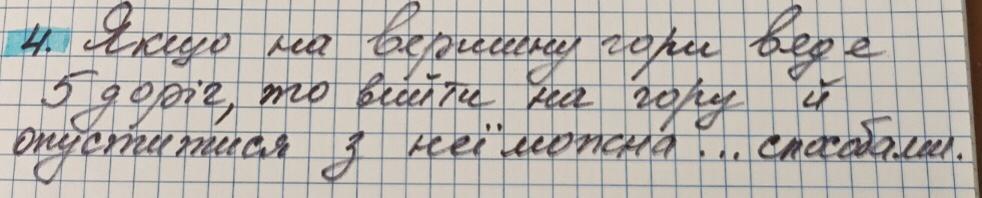 4. Якщо на вершину гори веде
5 доріг, то вийти на гору й
опуститися з неї можна ... способами.